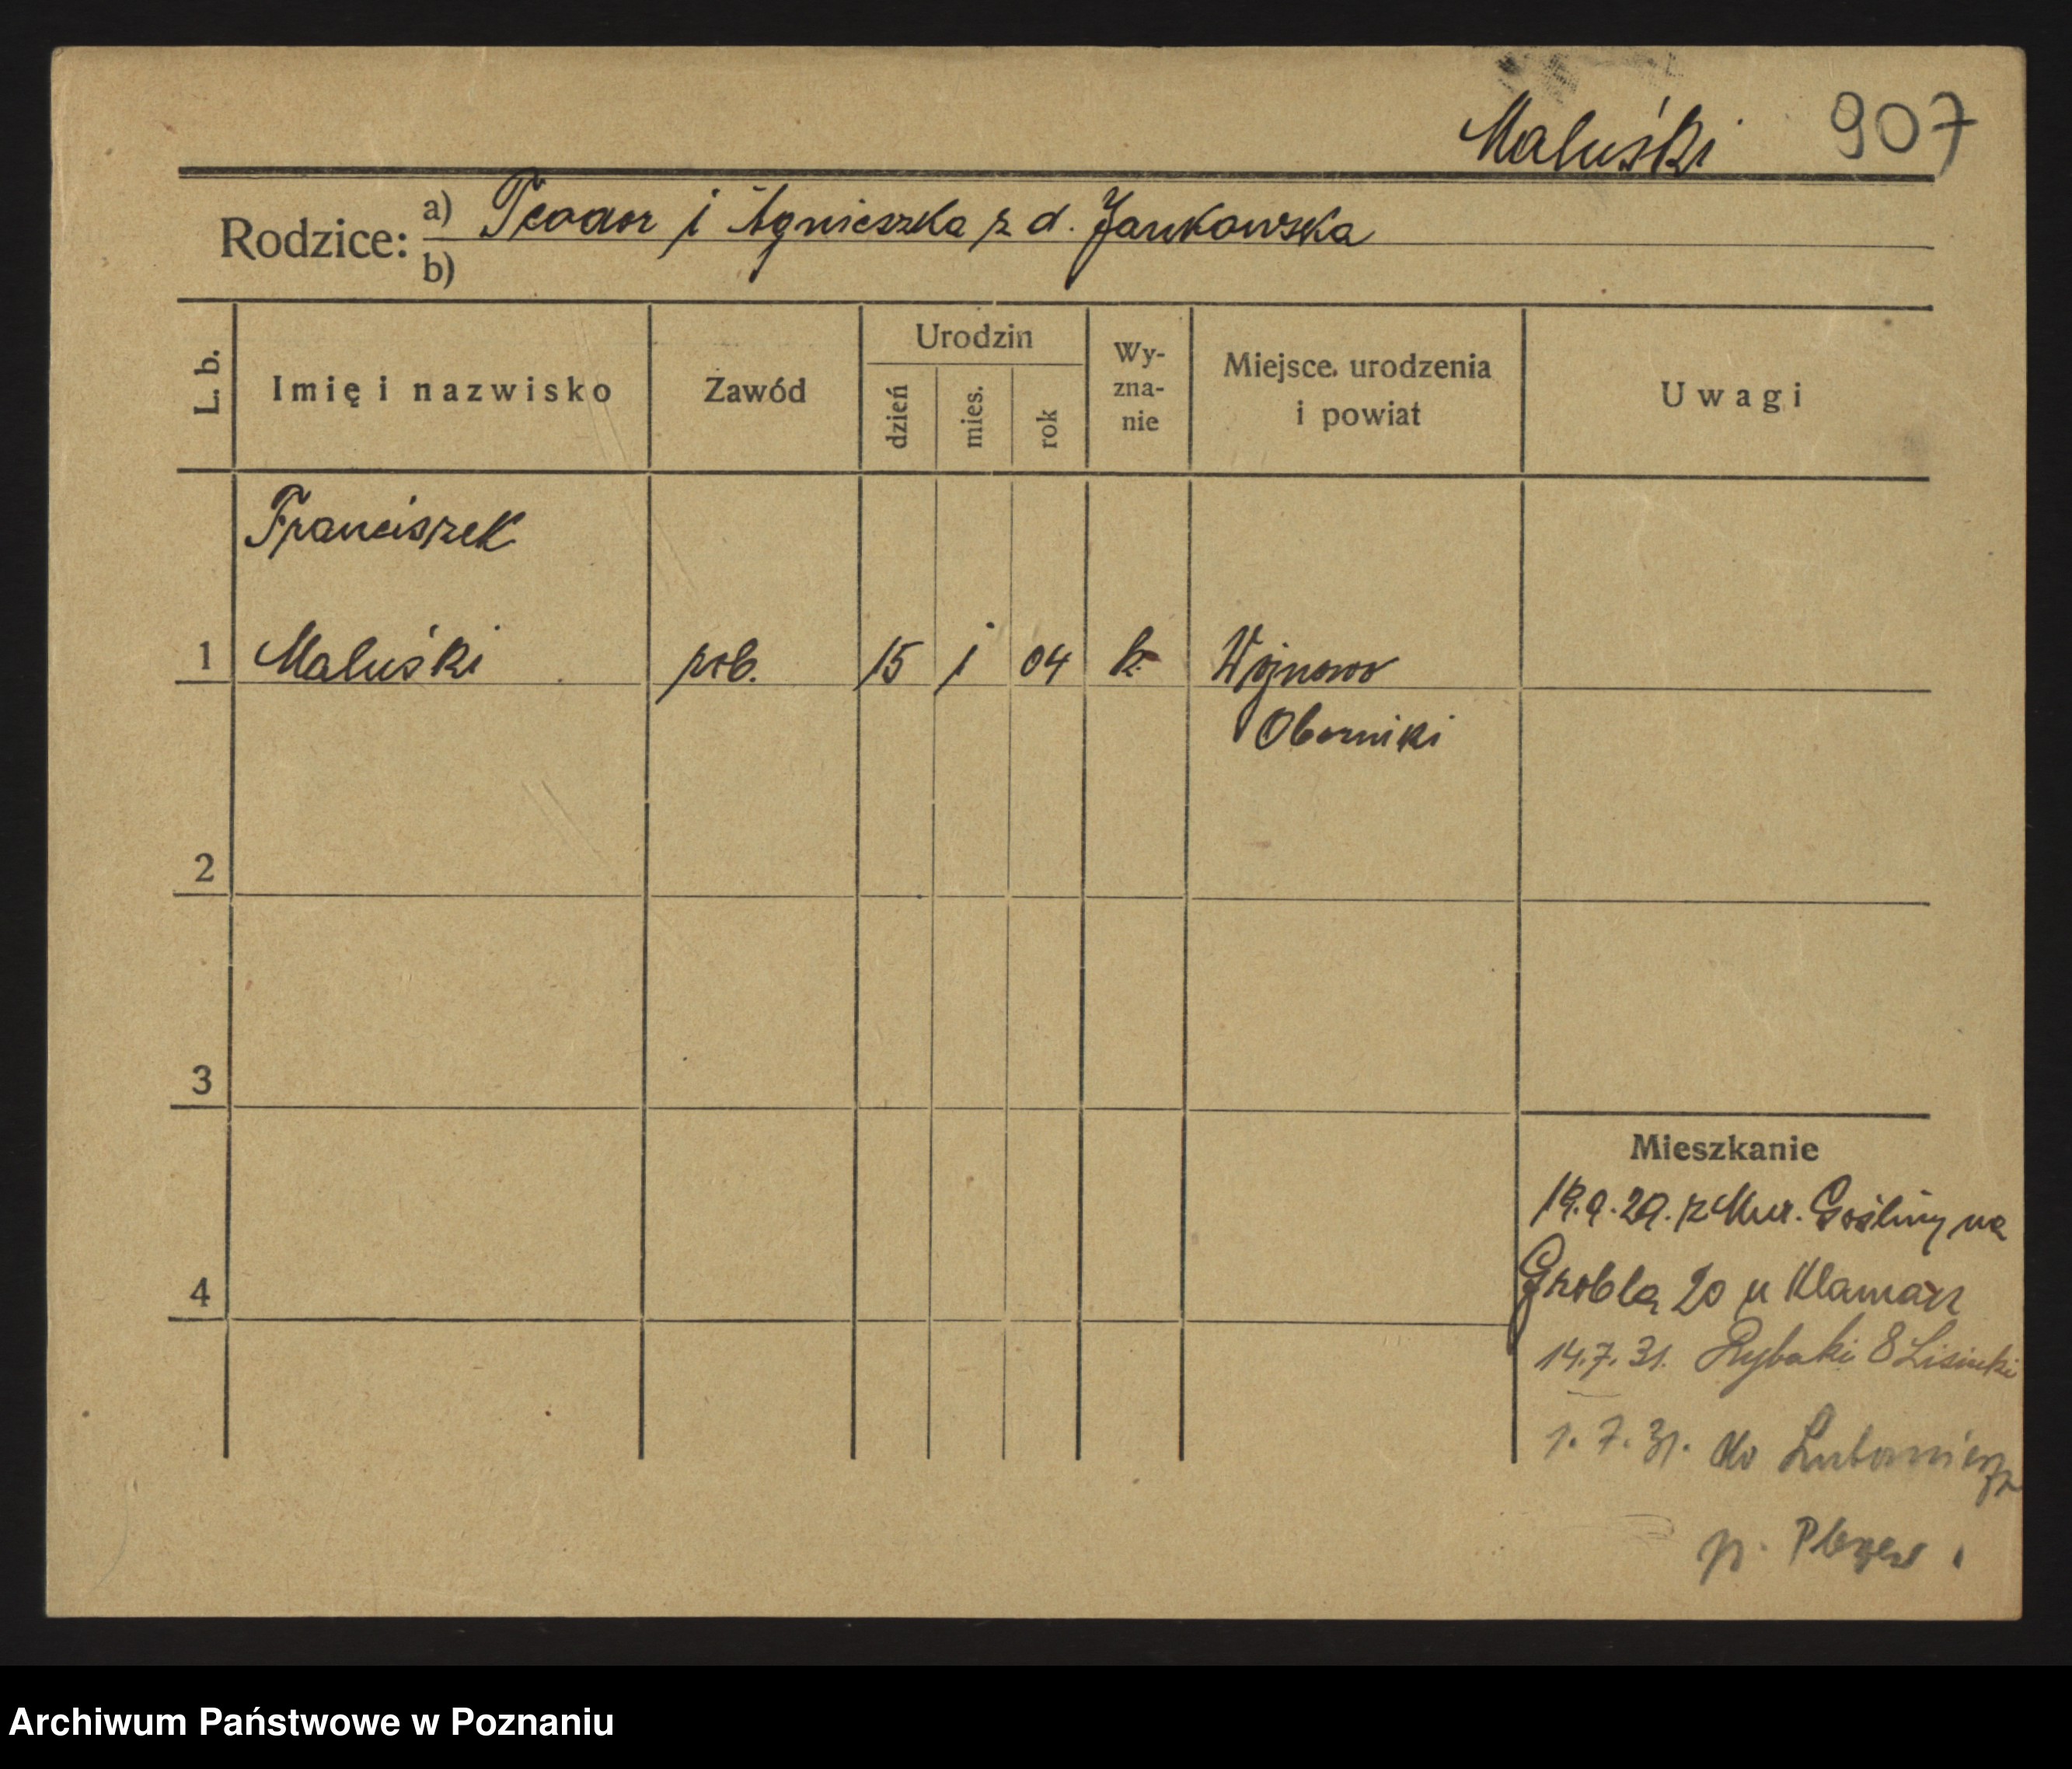 Maluśki 907
Rodzice: a) Teodor i Agnieszka z d. Jankowska
b)
L. b. Imię i nazwisko Zawód Urodzin dzień mies. rok Wy-zna-nie Miejsce urodzenia i powiat Uwagi
Franciszek
1 Maluśki rob. 15 1 04 k. Wojnowo
Oborniki
2
3
4
Mieszkanie
19.9.29. z Mur. Gośliny na
Grobla 20 u
14.7.31. Rybaki 8 Lisiecki
1.7.31. do
p.
Archiwum Państwowe w Poznaniu